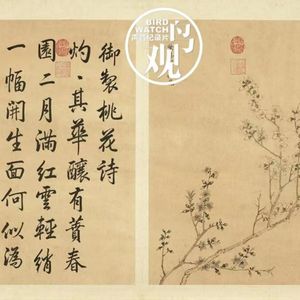 BIRD
WATCH
的
观
御製桃花詩
灼〻其華釀有蕡春
園二月滿紅雲輕綃
一幅開生面何似溈